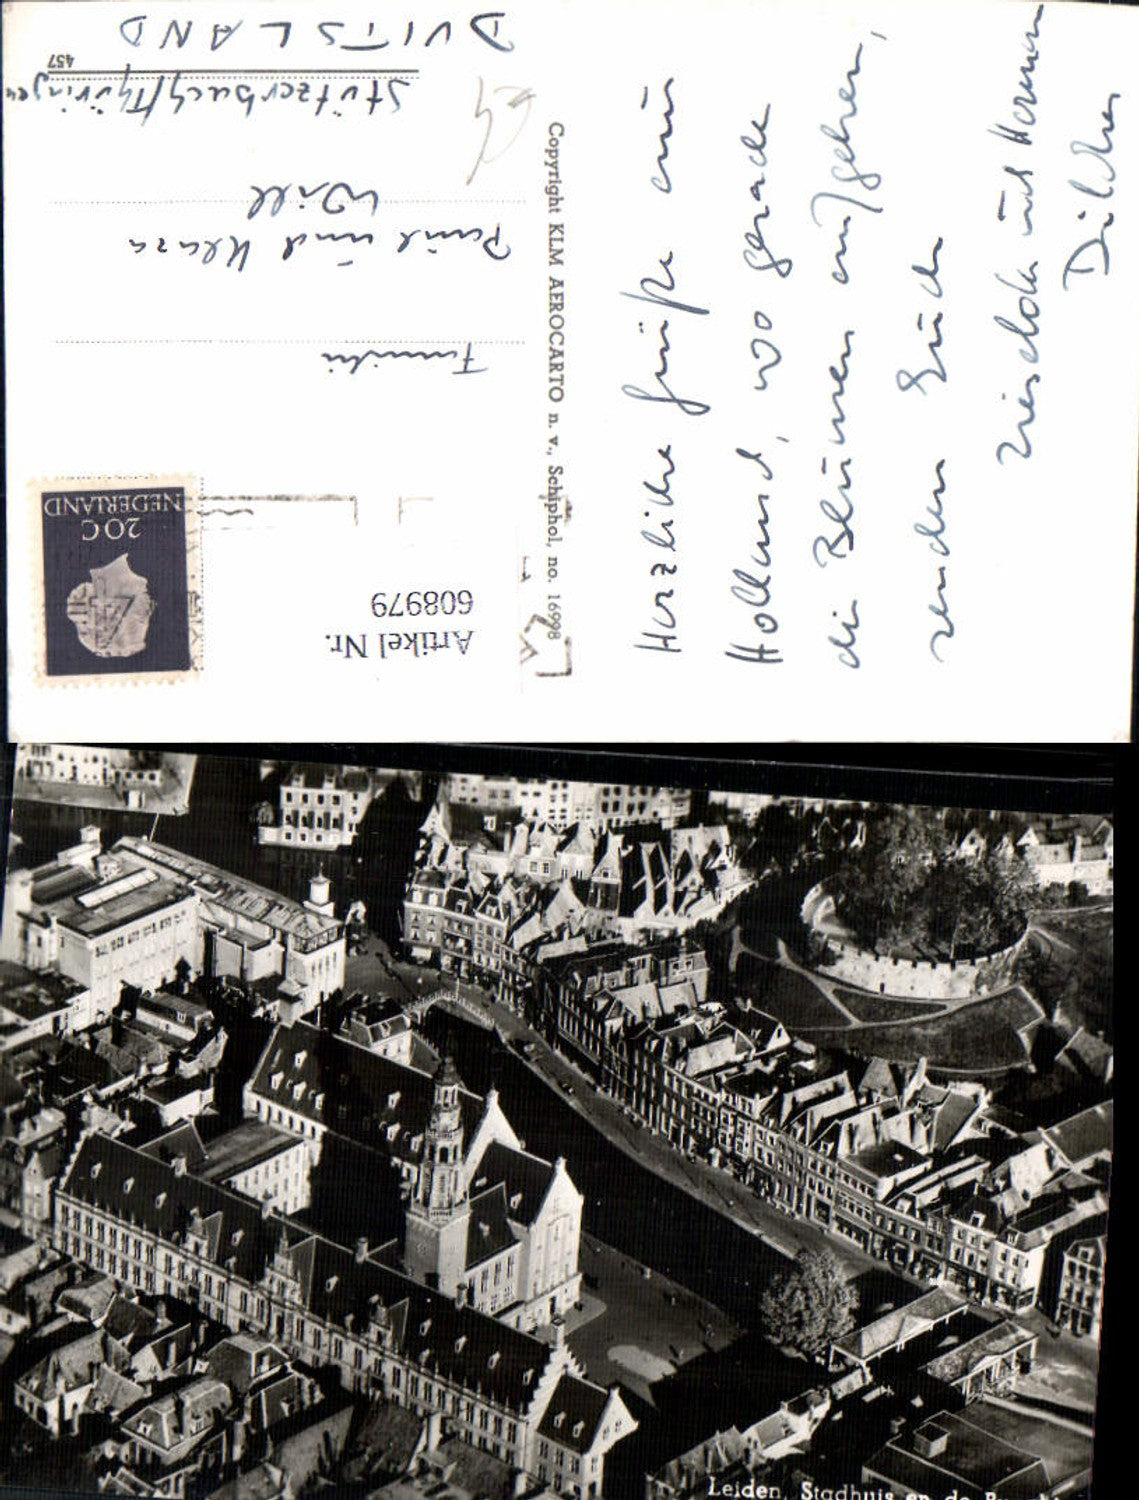 Herzliche Grüße aus
Holland, wo gerade
die Blumen aufgehen,
senden Euch
und Herman
Copyright KLM AEROCARTO n. v., Schiphol, no. 16998
Artikel Nr.
608979
NEDERLAND
20 C
Familie
Paul und Klara
Will
Stützerbach/Thüringen
457
DUITSLAND
Leiden, Stadhuis en de